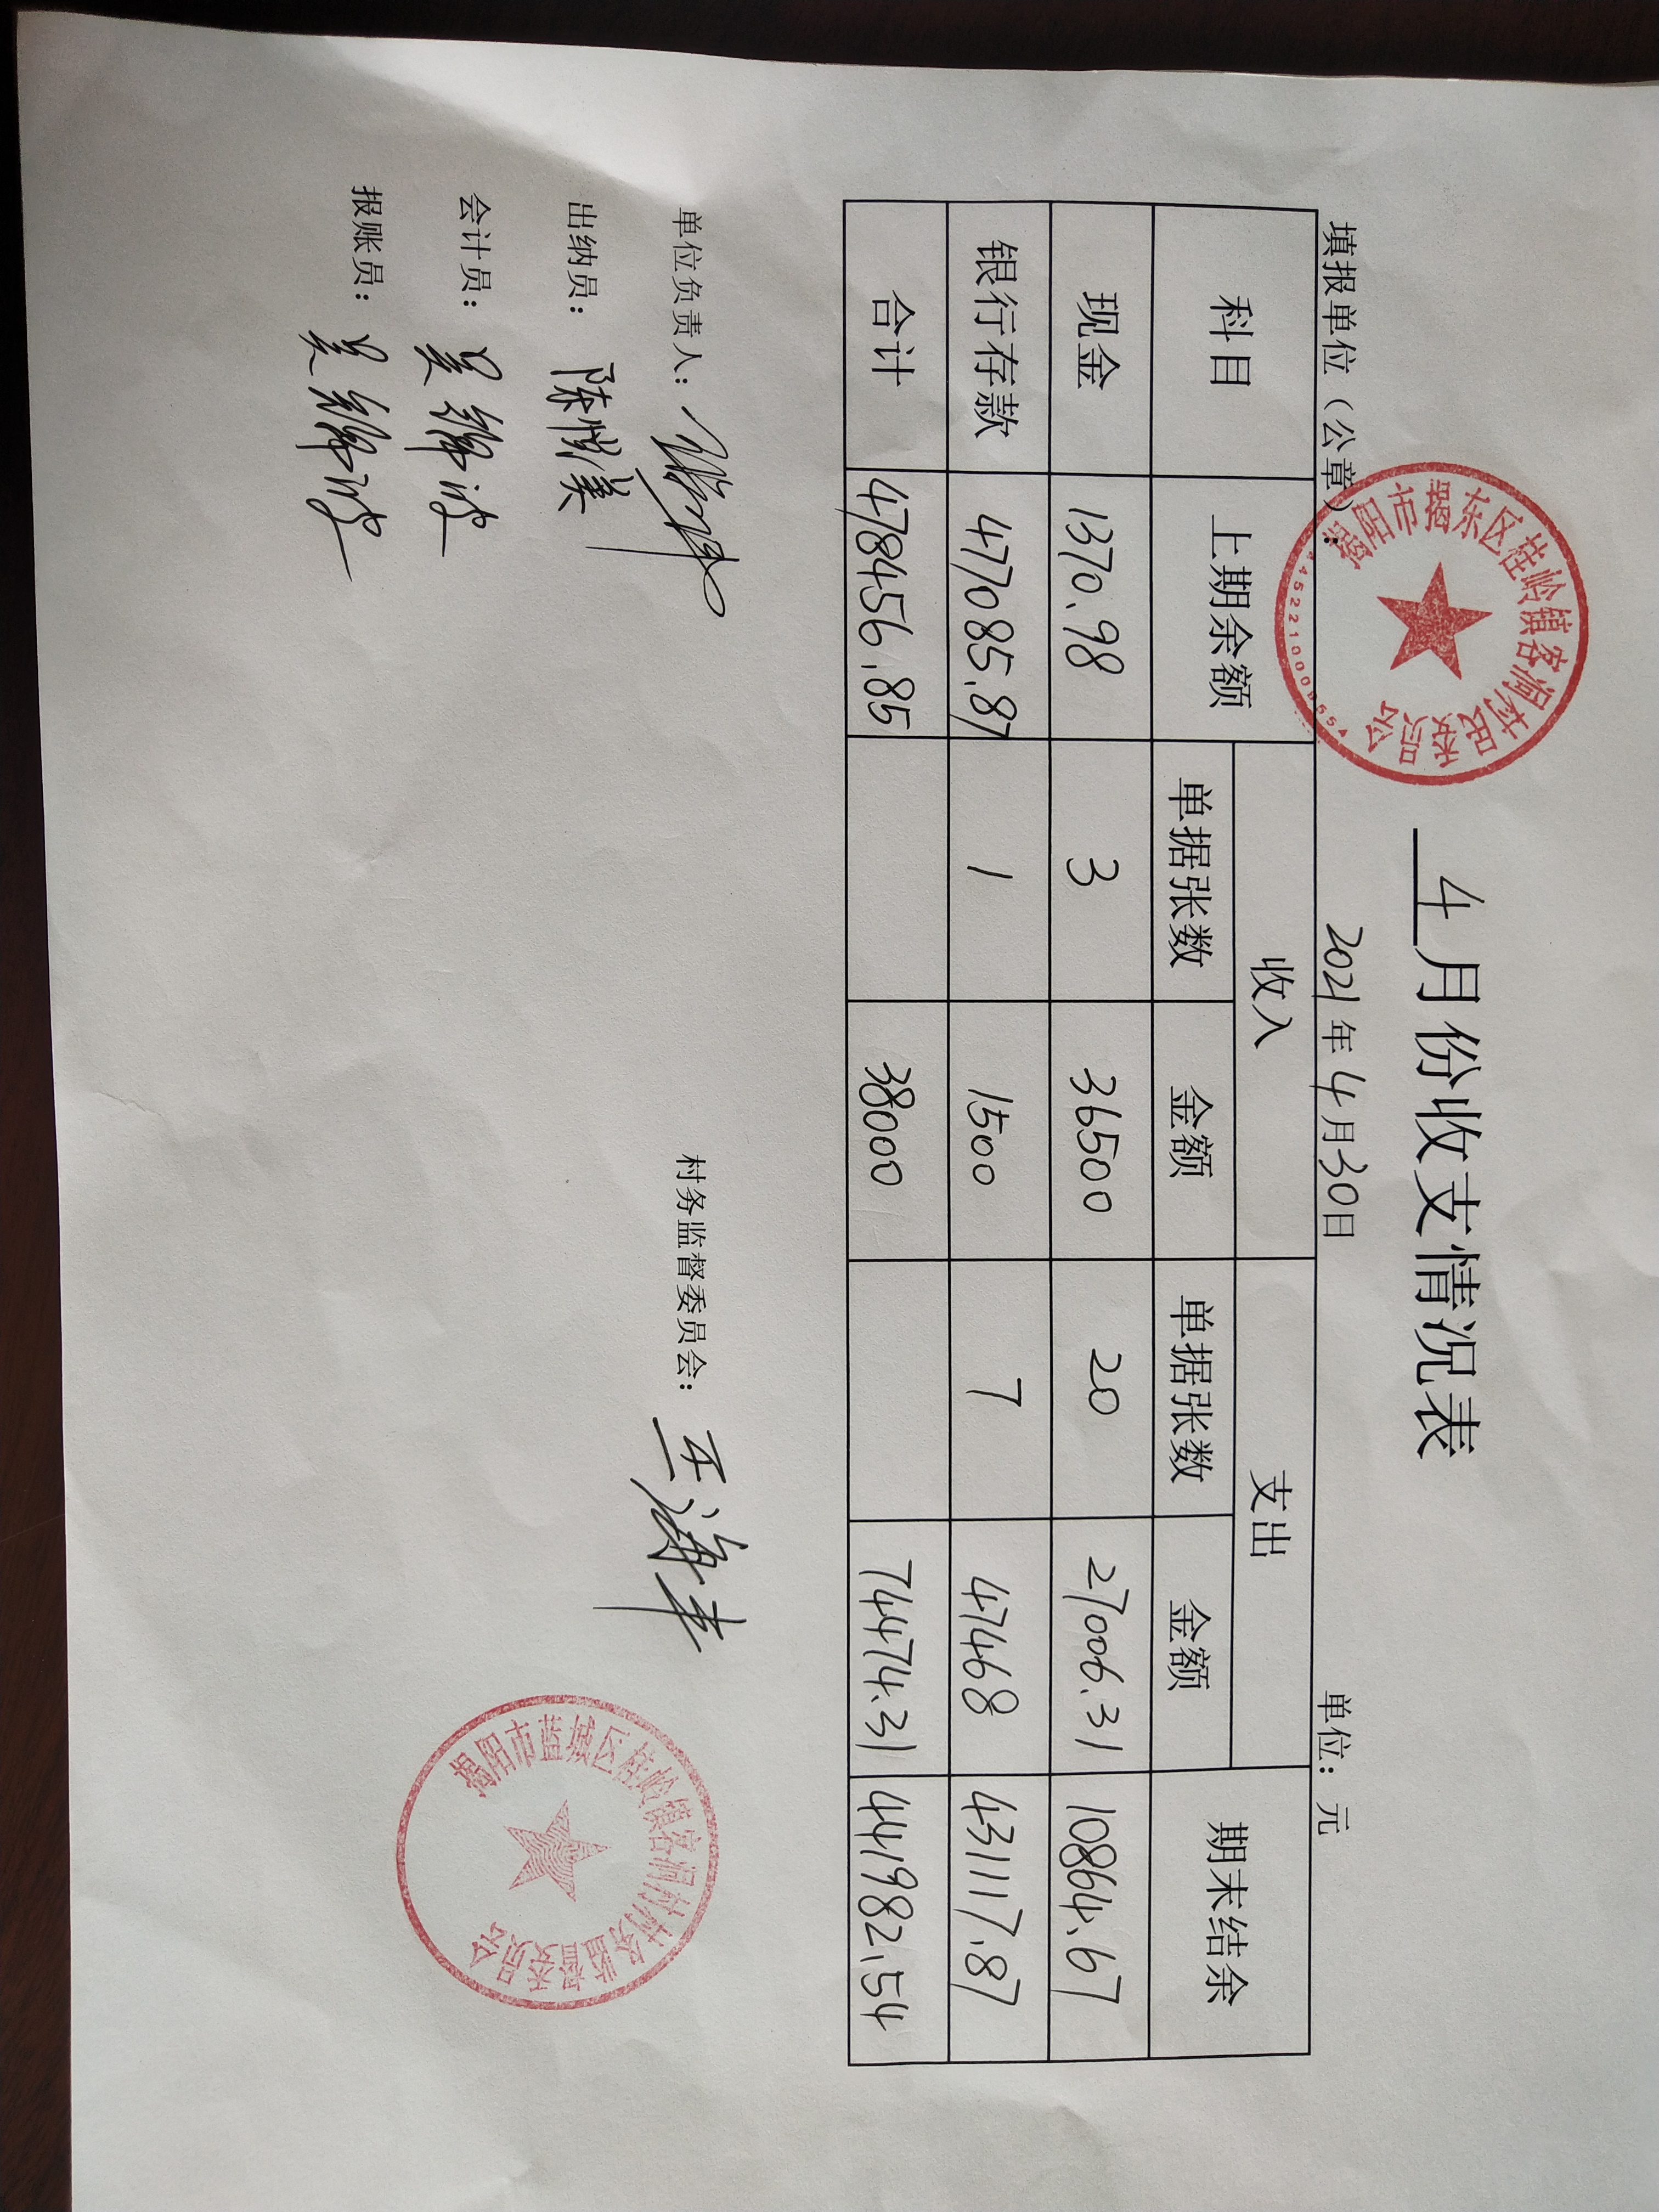 4月份收支情况表
填报单位（公章）： 2021年4月30日 单位：元
揭阳市揭东区桂岭镇客洞村民委员会
科目 上期余额 收入 支出 期末结余
单据张数 金额 单据张数 金额
现金 1370.98 3 36500 20 27006.31 10864.67
银行存款 477085.87 1 1500 7 47468 431117.87
合计 478456.85 38000 74474.31 441982.54
单位负责人： 村务监督委员会：
出纳员：
会计员：
报账员：
揭阳市蓝城区桂岭镇客洞村村务监督委员会